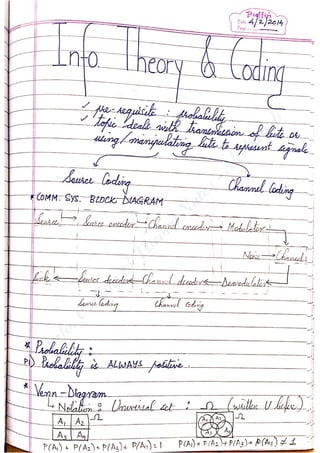 Date 4/2/2014
Page
Info. Theory & Coding
✓ pre-requisite : probability
✓ topic deals with transmission of bits or
using/manipulating bits to represent signals
Source Coding Channel Coding
* COMM. SYS. BLOCK DIAGRAM
Source → Source encoder → Channel encoder → Modulator
Noise → Channel
Sink ← Source decoder ← Channel decoder ← Demodulator
Source Coding Channel coding
* Probability :
P1) Probability is ALWAYS positive.
* Venn-Diagram
Notation : Universal set : Ω (written U before)
A1 A2 Ω A1 A2 Ω
A3 A4 A3
P(A1) + P(A2) + P(A3) + P(A4) = 1 P(A1) + P(A2) + P(A3) + P(A4) ≠ 1